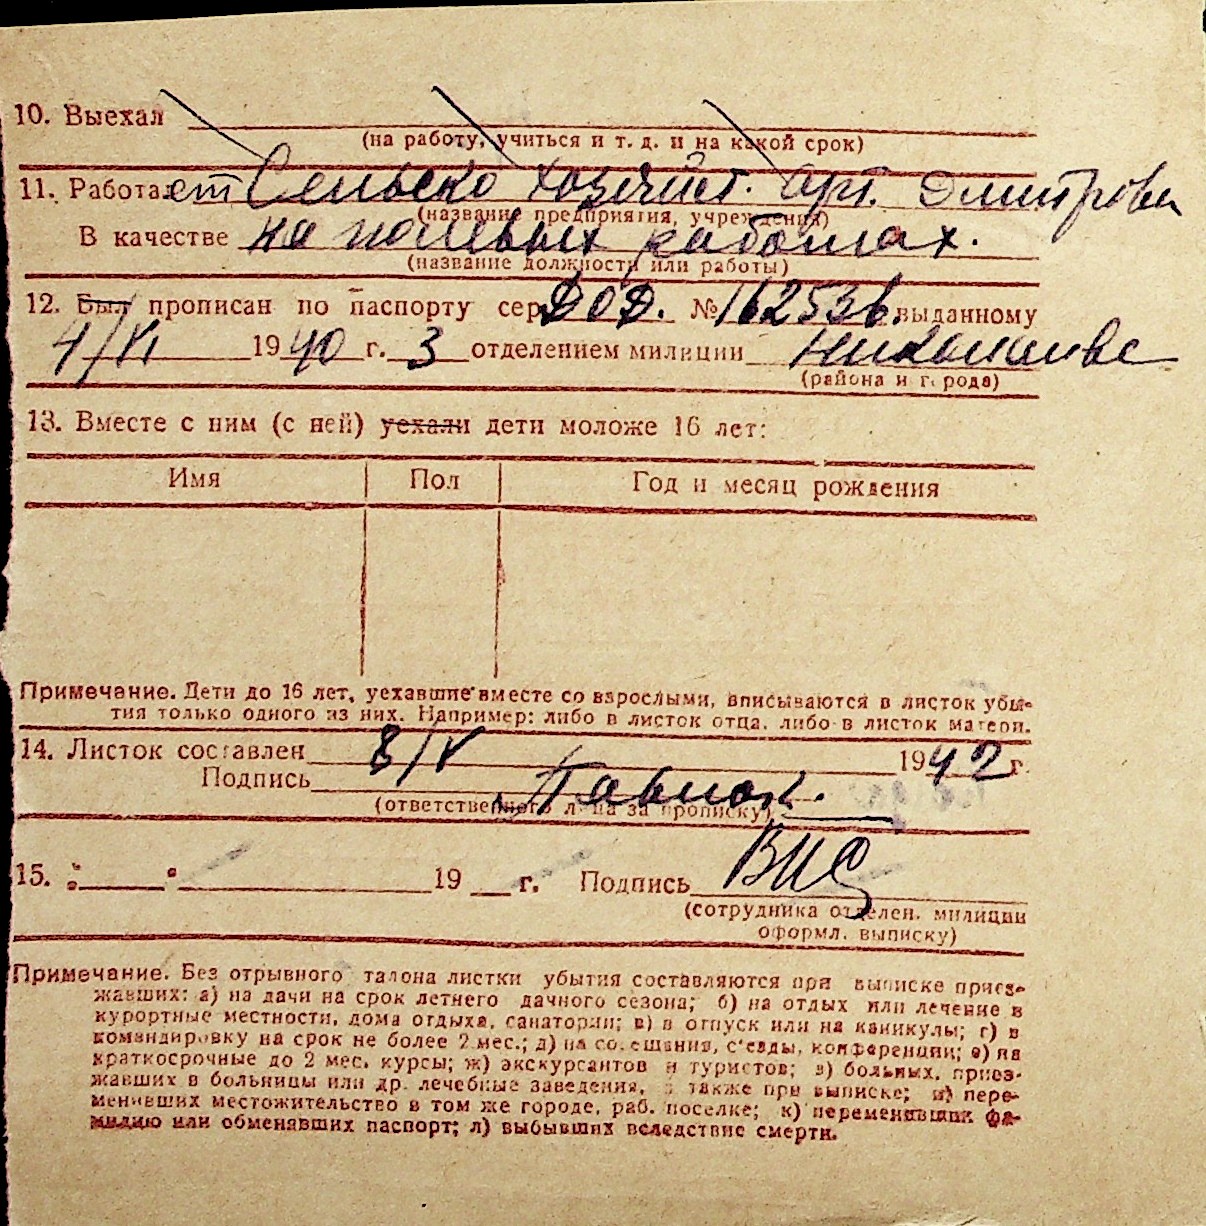 10. Выехал
(на работу, учиться и т. д. и на какой срок)
11. Работает Сельско хозяйст. арт. Дмитрова
(название предприятия, учреждения)
В качестве на полевых работах.
(название должности или работы)
12. Был прописан по паспорту сер. ДОД. № 162536 выданному
4/VI 1940 г. 3 отделением милиции Николаиве
(района и города)
13. Вместе с ним (с ней) уехали дети моложе 16 лет:
Имя Пол Год и месяц рождения
Примечание. Дети до 16 лет, уехавшие вместе со взрослыми, вписываются в листок убы-
тия только одного из них. Например: либо в листок отца, либо в листок матери.
14. Листок составлен 8/V 1942 г.
Подпись
(ответственного лица за прописку)
15. " " 19 г. Подпись
(сотрудника отделен. милиции
оформл. выписку)
Примечание. Без отрывного талона листки убытия составляются при выписке приез-
жавших: а) на дачи на срок летнего дачного сезона; б) на отдых или лечение в
курортные местности, дома отдыха, санатории; в) в отпуск или на каникулы; г) в
командировку на срок не более 2 мес.; д) на совещания, с'езды, конференции; е) на
краткосрочные до 2 мес. курсы; ж) экскурсантов и туристов; з) больных, приез-
жавших в больницы или др. лечебные заведения, а также при выписке; и) пере-
менивших местожительство в том же городе, раб. поселке; к) переменивших фа-
милию или обменявших паспорт; л) выбывших вследствие смерти.